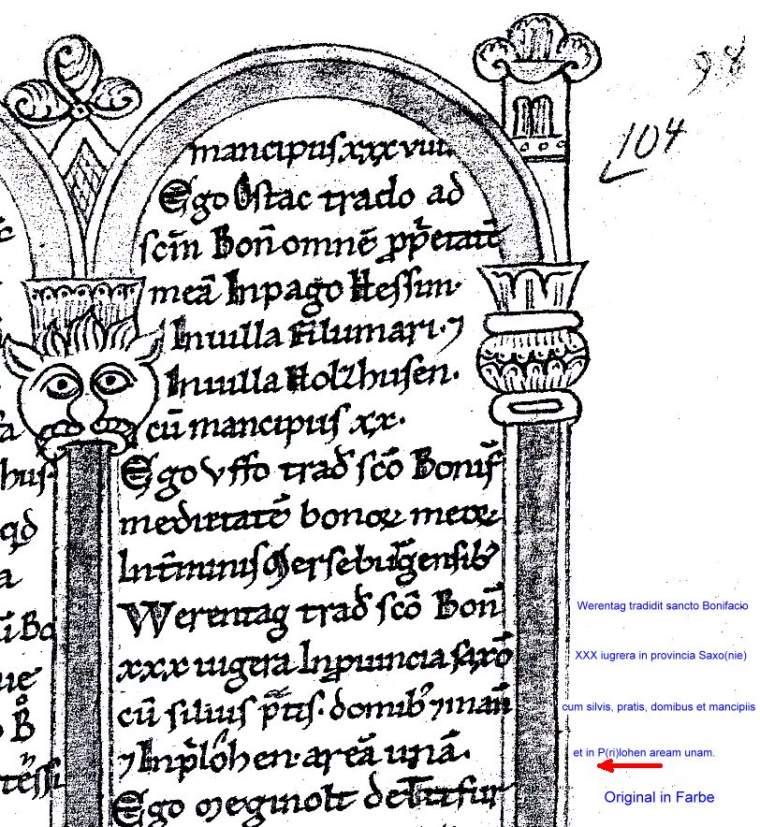 98
104
mancipiis xxxviii.
Ego Ostac trado ad
scm̄ Bon̄ omnē pp̄etatē
meā Inpago Hessun·
Inuilla Filumari·⁊
Inuilla Holzhusen.
cū mancipiis xx.
Ego Vffo trad̄ scō Bonif̄
medietatē bonoꝝ meoꝝ
Int̄minis Mersebuḡensibꝰ
Werentag trad̄ scō Bon̄
xxx iugera Inꝓuincia saxō
cū siluis p̄tis· domibꝰ ⁊ man̄
⁊ Inp̄lohen· areā unā.
Ego Meginolt de
c
fa
hus
qd
a
ū Bo
ue
B
Werentag tradidit sancto Bonifacio
XXX iugrera in provincia Saxo(nie)
cum silvis, pratis, domibus et mancipiis
et in P(ri)lohen aream unam.
Original in Farbe